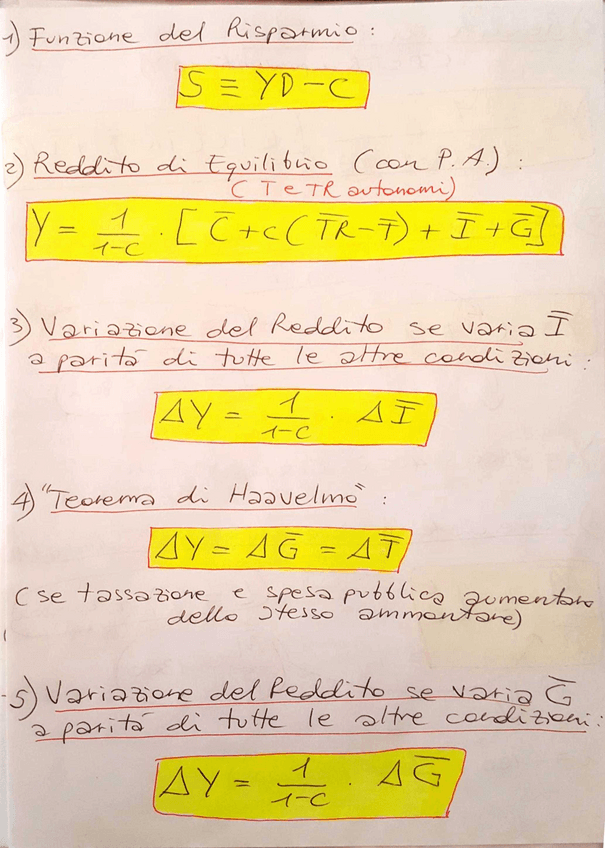 1) Funzione del Risparmio :
S ≡ YD - C
2) Reddito di Equilibrio (con P.A.) :
( T e TR autonomi)
Y = 1/(1-c) · [ C̅ + c ( T̅R̅ - T̅ ) + I̅ + G̅ ]
3) Variazione del Reddito se varia I̅
a parità di tutte le altre condizioni :
ΔY = 1/(1-c) · ΔI̅
4) "Teorema di Haavelmo" :
ΔY = ΔG̅ = ΔT̅
( se tassazione e spesa pubblica aumentano
dello stesso ammontare)
5) Variazione del Reddito se varia G̅
a parità di tutte le altre condizioni :
ΔY = 1/(1-c) · ΔG̅